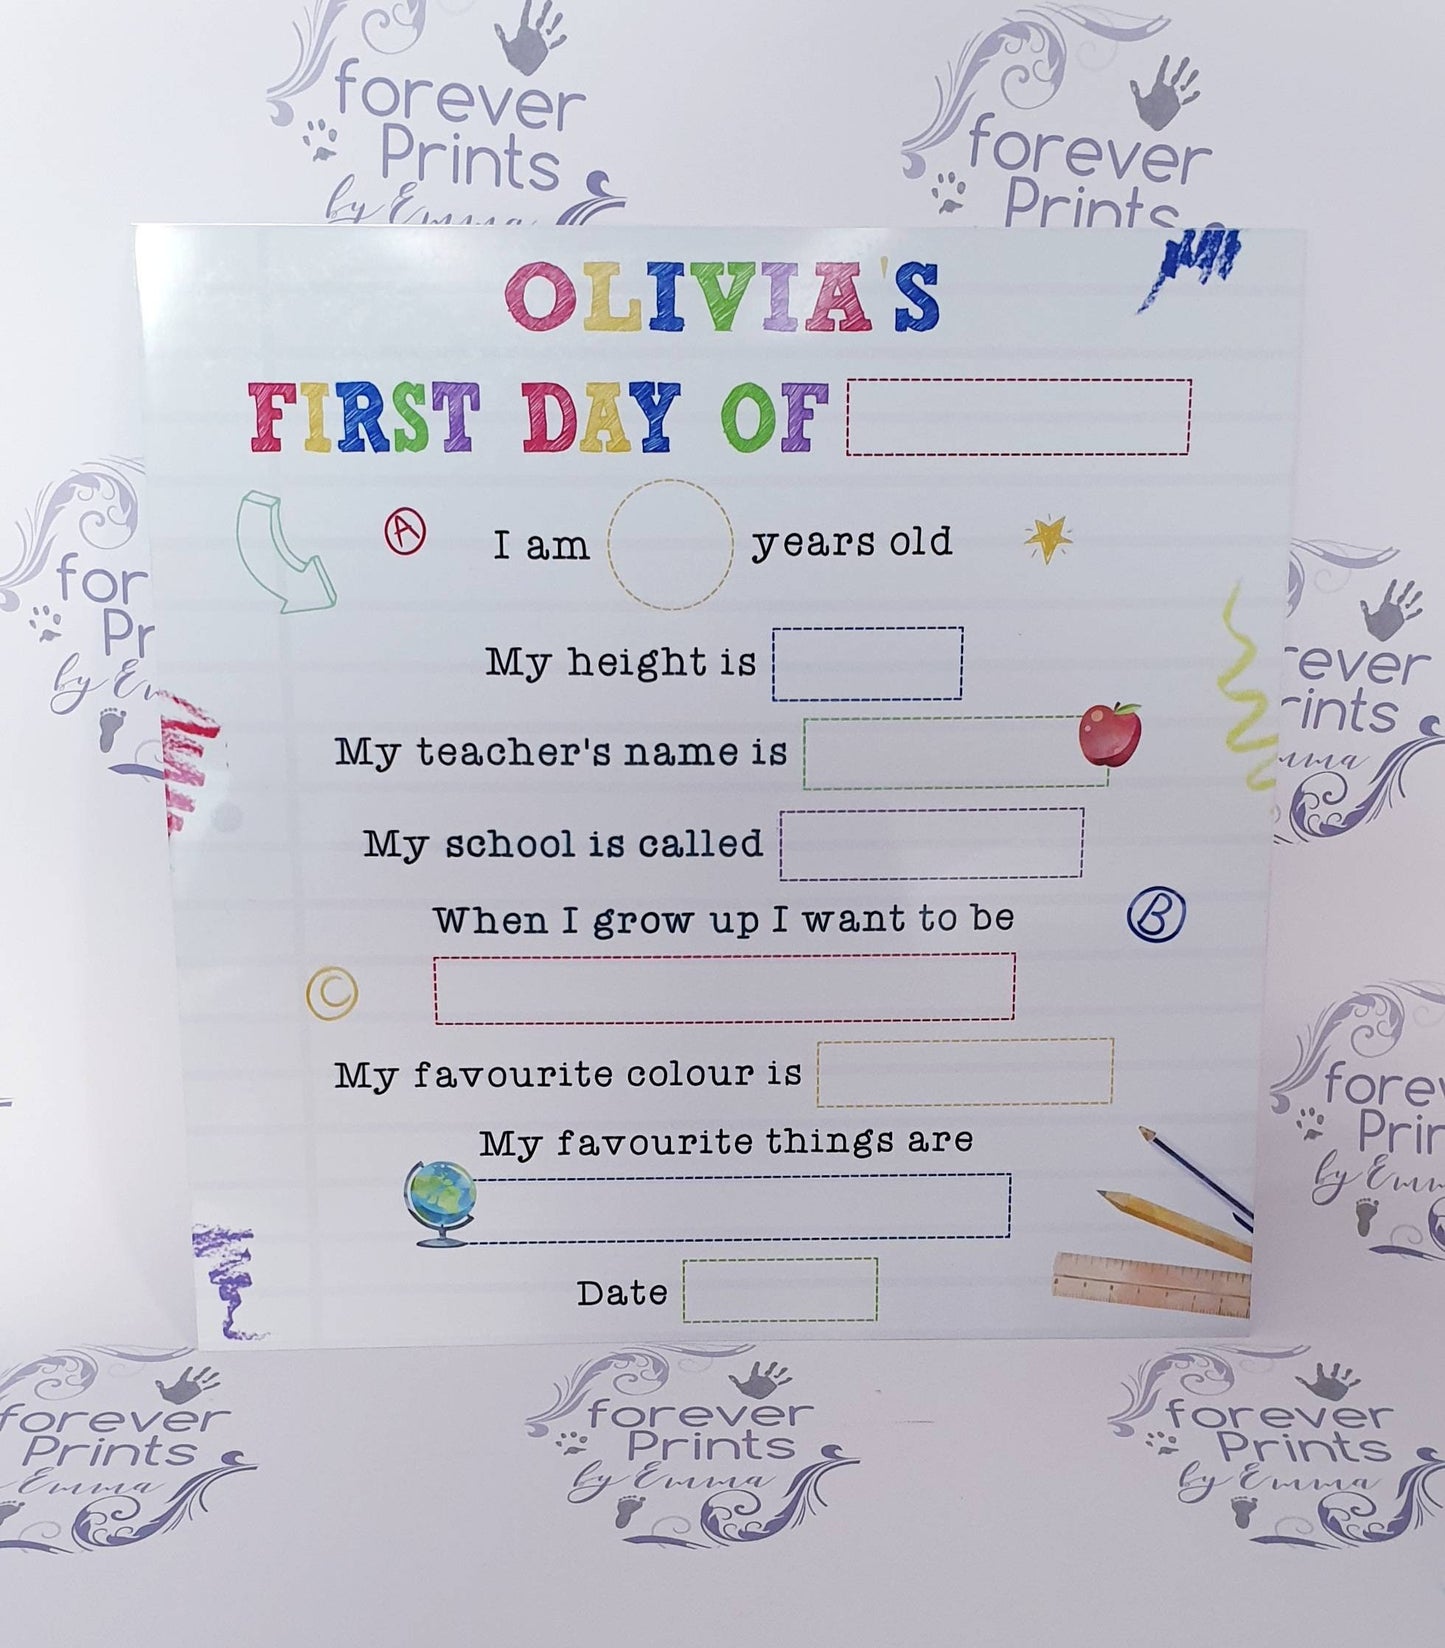 forever
Prints
by Emma
forever
Prints
OLIVIA'S
FIRST DAY OF
A
I am years old
My height is
My teacher's name is
My school is called
When I grow up I want to be
B
C
My favourite colour is
My favourite things are
Date
for
Pr
by Em
ever
rints
mma
forever
Prin
by Emm
forever
Prints
Emma
forever
Prints
by Emma
forever
Prints
by Emma